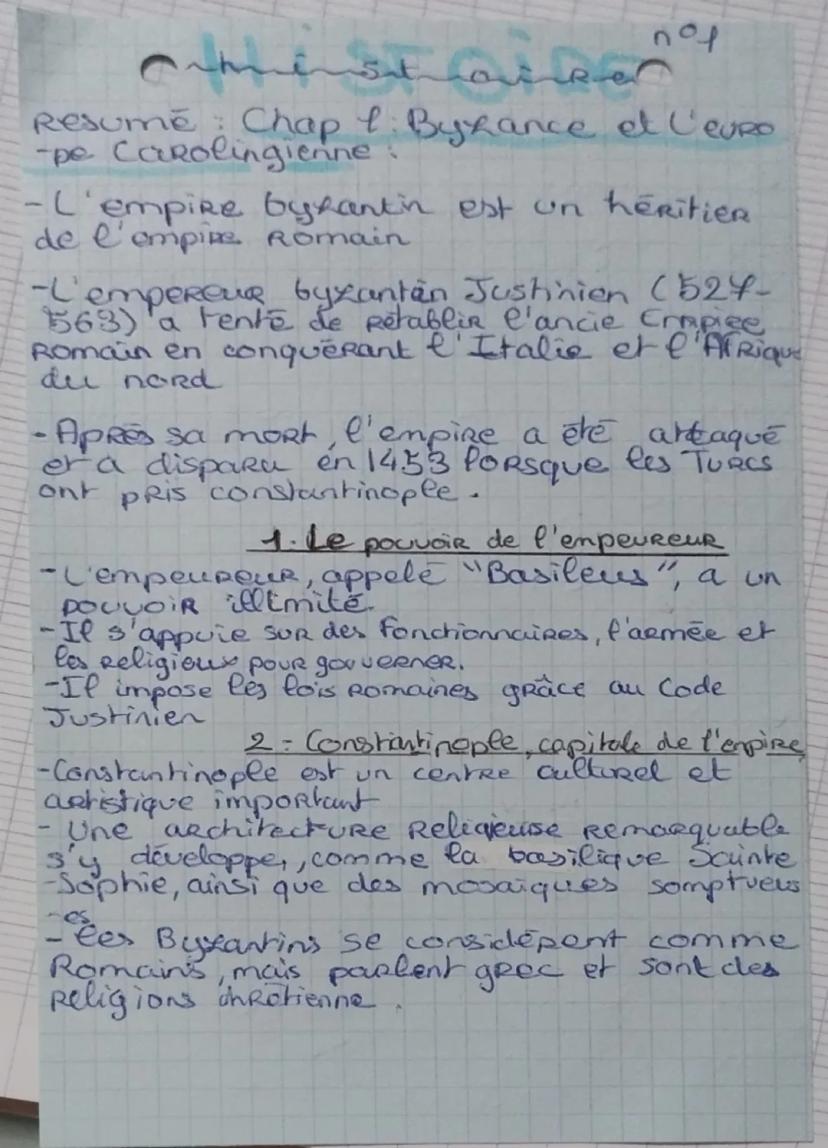 n°1
Histoire
Resumé : Chap 1 : Byzance et l'euro
-pe Carolingienne :
- L'empire byzantin est un héritier
de l'empire Romain
- L'empereur byzantin Justinien (527-
563) a tenté de rétablir l'ancie Empire
Romain en conquérant l'Italie et l'Afrique
du nord
- Après sa mort, l'empire a été attaqué
et a disparu en 1453 lorsque les Turcs
ont pris constantinople.
1. Le pouvoir de l'empeureur
- L'empeureur, appelé "Basileus", a un
pouvoir illimité.
- Il s'appuie sur des fonctionnaires, l'armée et
les religieux pour gouverner.
- Il impose les lois romaines grâce au Code
Justinien
2 - Constantinople, capitale de l'empire
- Constantinople est un centre culturel et
artistique important
- Une architecture religieuse remarquable
s'y développe, comme la basilique Sainte
-Sophie, ainsi que des mosaïques somptueus
-es
- Les Byzantins se considèrent comme
Romains, mais parlent grec et sont des
religions chrétienne.